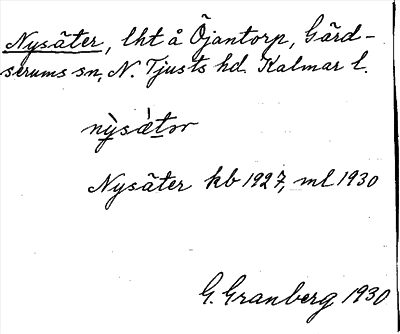 Nysäter, lht å Öjantorp, Gärd-
serums sn, N. Tjusts hd. Kalmar l.
nỳsæ̀tər
Nysäter kb 1927, ml 1930
G. Granberg 1930